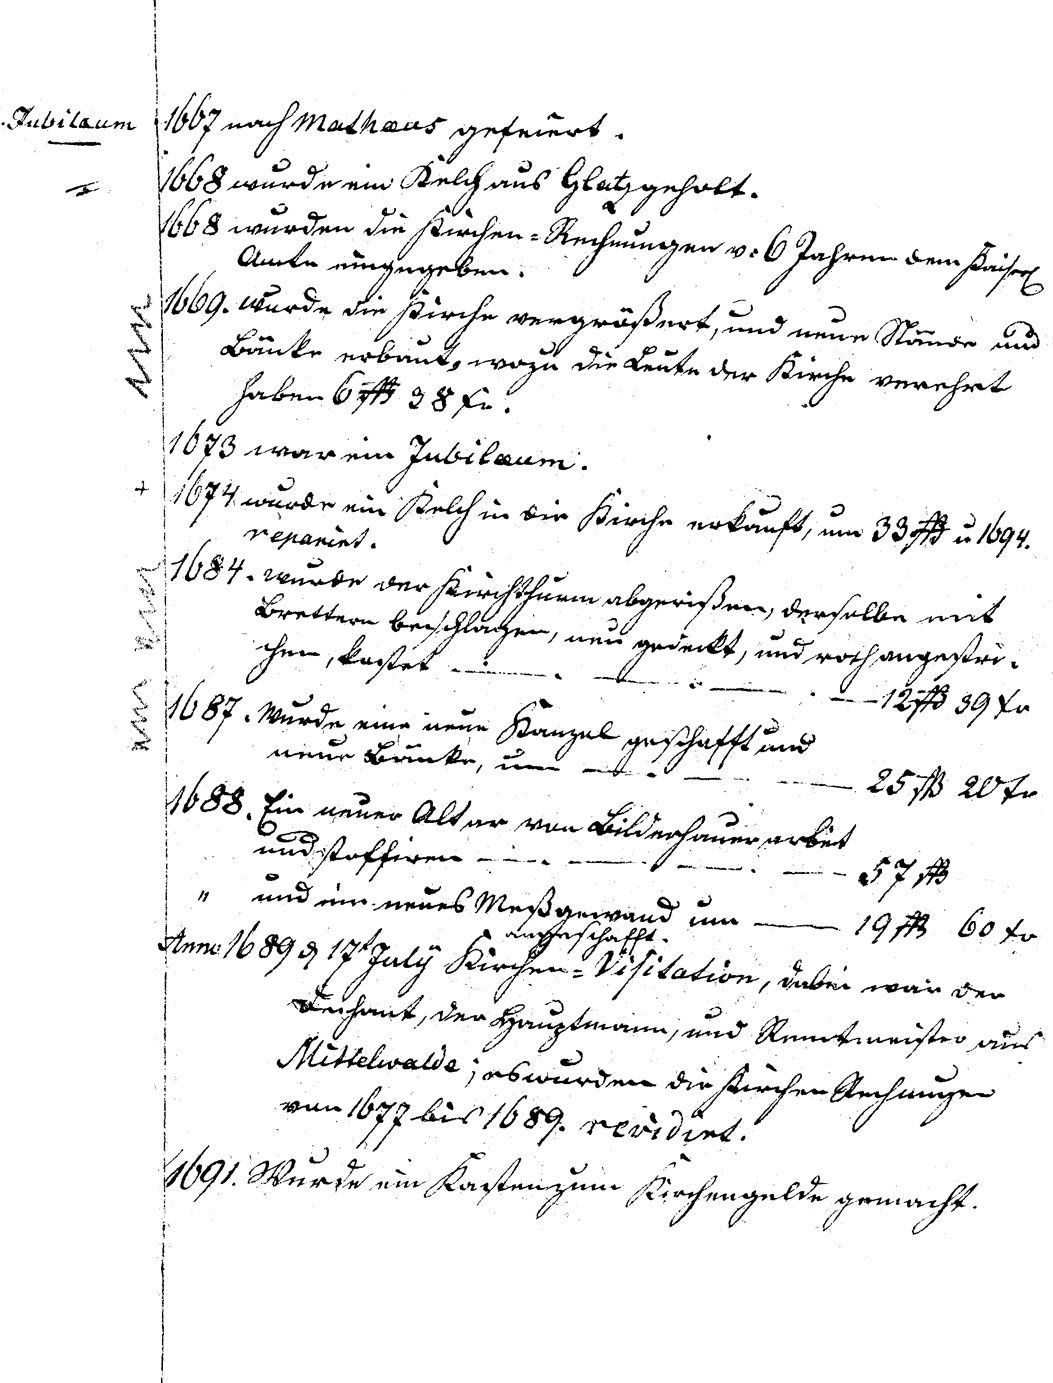 Jubilaeum 1667 nach Mathaeus gefeiert.
1668 wurde ein Kelch aus Glatz geholt.
1668 wurden die Kirchen=Rechnungen v. 6 Jahren dem Kaiserl
Amte eingegeben.
1669. wurde die Kirche vergrößert, und neue Stände und
Bänke erbaut, wozu die Leute der Kirche verehrt
haben 6 fß 38 kr.
1673 war ein Jubilaeum.
+ 1674 wurde ein Kelch in die Kirche erkauft, um 33 fß u 1694.
reparirt.
1684. wurde der Kirchthurm abgerißen, derselbe mit
Brettern beschlagen, neu gedeckt, und roth angestri-
chen, kostet 12 fß 39 kr
1687. Wurde eine neue Kanzel geschafft und
neue Bänke, um 25 fß 20 kr
1688. Ein neuer Altar von Bildenhauerarbeit
und stoffiren 57 fß
" und ein neues Meßgewand um 19 fß 60 kr
angeschafft.
Anno 1689 d 17t July Kirchen=Visitation, dabei war der
Dechant, der Hauptmann, und Rentmeister aus
Mittelwalde; es wurden die Kirchen Rechnungen
von 1677 bis 1689. revidirt.
1691. Wurde ein Kasten zum Kirchengelde gemacht.